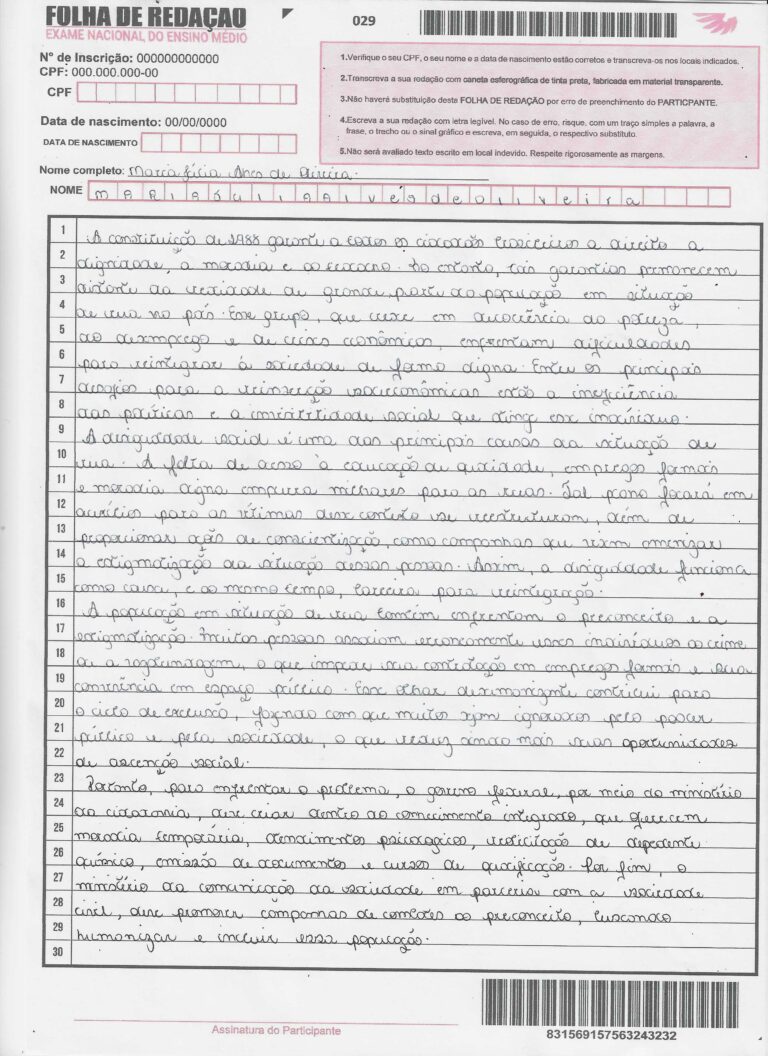 FOLHA DE REDAÇÃO
EXAME NACIONAL DO ENSINO MÉDIO
029
Nº de Inscrição: 000000000000
CPF: 000.000.000-00
CPF
Data de nascimento: 00/00/0000
DATA DE NASCIMENTO
1.Verifique o seu CPF, o seu nome e a data de nascimento estão corretos e transcreva-os nos locais indicados.
2.Transcreva a sua redação com caneta esferográfica de tinta preta, fabricada em material transparente.
3.Não haverá substituição deste FOLHA DE REDAÇÃO por erro de preenchimento do PARTICIPANTE.
4.Escreva a sua redação com letra legível. No caso de erro, risque, com um traço simples a palavra, a
frase, o trecho ou o sinal gráfico e escreva, em seguida, o respectivo substituto.
5.Não será avaliado texto escrito em local indevido. Respeite rigorosamente as margens.
Nome completo: Maria Júlia Alves de Oliveira
NOME Maria Júlia Alves de Oliveira
1 A constituição de 1988 garante a todos os cidadãos brasileiros a direito a
2 dignidade, a moradia e ao trabalho. No entanto, tais garantias permanecem
3 distante da realidade de grande parte da população em situação
4 de rua no país. Esse grupo, que cresce em decorrência da pobreza,
5 do desemprego e de crises econômicas, enfrentam dificuldades
6 para reintegrar à sociedade de forma digna. Entre os principais
7 desafios para a reinserção socioeconômicas estão a ineficiência
8 das políticas e a social que atinge esse indivíduos.
9 A desigualdade social é uma das principais causas da situação de
10 rua. A falta de acesso à educação de qualidade, empregos formais
11 e moradia digna empurra milhares para as ruas. Tal plano focará em
12 auxílios para as vítimas desse contexto se reestruturam, além de
13 proporcionar ações de conscientização, como campanhas que visem amenizar
14 a estigmatização da situação dessas pessoas. Assim, a desigualdade funciona
15 como causa, e ao mesmo tempo, barreira para reintegração.
16 A população em situação de rua também enfrentam o preconceito e a
17 estigmatização. Muitas pessoas associam erroneamente esses indivíduos ao crime
18 ou a vagabundagem, o que impede sua contratação em empregos formais e sua
19 convivência em espaço público. Esse olhar desumanizante contribui para
20 o ciclo de exclusão, fazendo com que muitos sejam ignorados pelo poder
21 público e pela sociedade, o que reduz ainda mais suas oportunidades
22 de ascenção social.
23 Portanto, para enfrentar o problema, o governo federal, por meio do ministério
24 da cidadania, deve criar centro do integrado, que oferecem
25 moradia temporária, atendimentos psicologicos, reabilitação de dependente
26 químico, emissão de documentos e cursos de qualificação. Por fim, o
27 ministério da comunicação da sociedade em parceria com a sociedade
28 civil, deve promover campanhas de combates ao preconceito, buscando
29 humanizar e incluir essa população.
30
Assinatura do Participante
831569157563243232